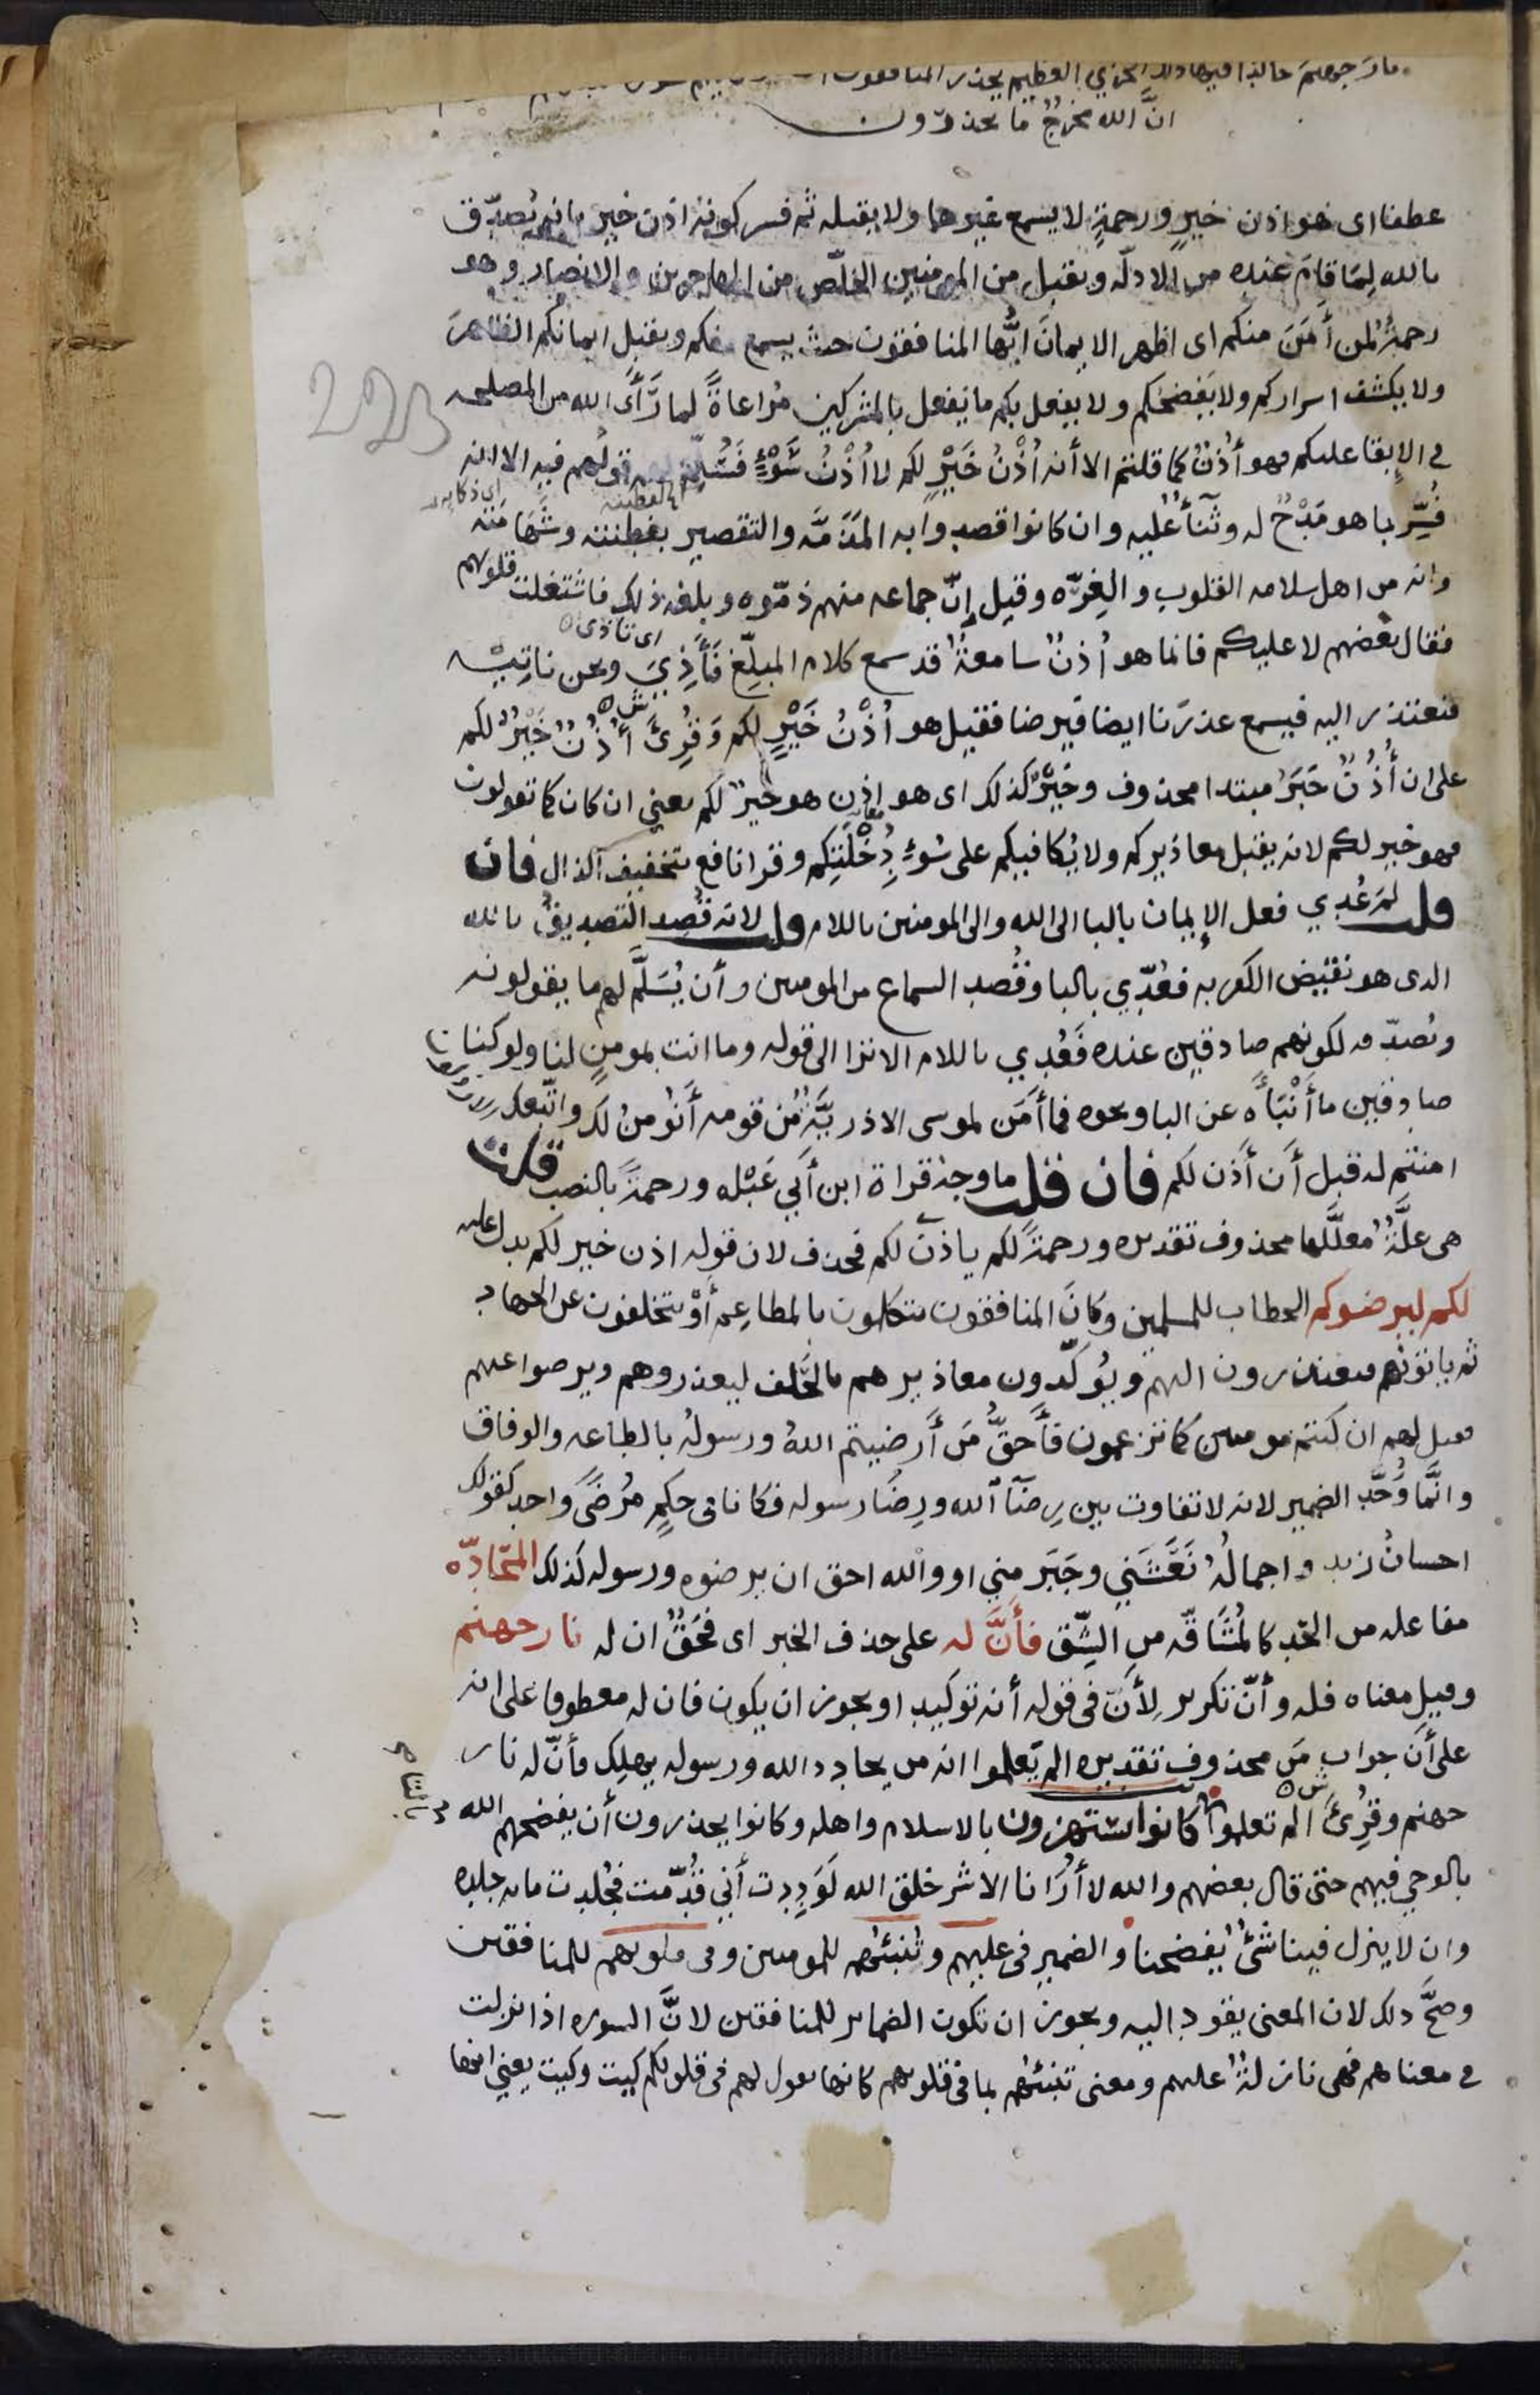 نار جهنم خالدا فيها ذلك الخزي العظيم يحذر المنافقون
انَّ الله مخرجٌ ما تحذرون
عطفا اى هو اذن خيرٍ ورحمةٍ لا يسمع غيرهما ولا يقبله ثم فسر كونه اذن خير بانه يُصدّق
بالله لِمَا قامَ عنده من الادلّه ويقبل من المومنين الخلّص من المهاجرين والانصار وهو
رحمةٌ لمن أمَنَ منكم اى اظهر الايمانَ ايُّها المنافقون حيث يسمع منكم ويقبل ايمانكم الظاهرَ
ولا يكشف اسراركم ولا يَفضحكم ولا يفعل بكم ما يفعل بالمشركين مُراعاةً لما رَأَى الله من المصلحه
فى الإبقا عليكم فهو أذنٌ كما قلتم الا أنه أُذْنُ خَيْرٍ لكم لا أُذْنُ سَوْءٍ فسُلّم لهم قولُهم فيه الا انه
فُسِّر بما هو مَدْحٌ له وثَنَأٌ عليه وان كانوا قصدوا به المَذمَّه والتقصير بفطنته وشَهَامَته
اى ذكايه
وانه من اهل سلامه القلوب والغِرّه وقيل إنّ جماعه منهم ذمّوه وبلغه ذلك فاشتغلت قلوبهم
فقال بعضهم لا عليكم فانما هو أذنٌ سامعةٌ قد سمع كلام المبلّغ فَأَذِيَ ونحن ناتِيْه
اى تاذى
فنعتذر اليه فيسمع عذرَنا ايضا فيرضا فقيل هو أُذْنُ خَيْرٍ لكم وَقُرِئَ أُذُنٌ خَيْرٌ لكم
على ان أُذُنٌ خَبَرُ مبتدا محذوف وخَيْرٌ كذلك اى هو اذن هو خيرٌ لكم يعني ان كان كما تقولون
فهو خير لكم لانه يقبل معاذيركم ولا يُكافيكم على سُوءِ دِخْلَتِكم وقرا نافع بتخفيف الذال فان
قلت لم عُدِي فعل الإيمان بالبا الى الله والى المومنين باللام قلت لانه قُصِد التصديقُ بالله
الدى هو نقيض الكفر به فعُدّي بالبا وقُصِد السماع من المومنين وأن يُسَلَّم لهم ما يقولونه
ونُصدّقه لكونهم صادقين عنده فَعُدِي باللام الا ترا الى قوله وما انت بمومنٍ لنا ولو كنا
صادقين ما أَنْبَأَه عن البا ونحوه فما أمَن لموسى الا ذريَّةٌ من قومه أنُومنُ لك واتّبعك
امنتم له قبل أن أذن لكم فان قلت ما وجهُ قراة ابن أبي عَبْله ورحمةً بالنصب قلت
هى علَّةٌ معلَّلها محذوف تقديره ورحمةً لكم ياذن لكم فحذف لان قوله اذن خير لكم يدل عليه
لكم ليرضوكم الخطاب للمسلمين وكانَ المنافقون يتكلمون بالمطاعِم أوْ يتخلفون عن الجهاد
ثم ياتونهم فيعتذرون اليهم ويُوكّدون معاذيرهم بالحَلف ليعذروهم ويرضوا عنهم
فقيل لهم ان كنتم مومنين كما تزعمون فأحقُّ مَن أرضيتم اللهُ ورسولهُ بالطاعه والوفاق
وانَّما وُحِّد الضمير لانه لا تفاوت بين رِضَآ الله ورِضَا رسوله فكانا فى حكمِ مُرْضًى واحد كقولك
احسانُ زيد واجمالُهُ نَعَشَني وجَبَر مني او والله احق ان يرضوه ورسوله كذلك المحَادّه
مفاعله من الحَد كالمُشَاقّه من الشِّق فأنَّ له على حذف الخبر اى فحَقٌ ان له نار جهنم
وقيل معناه فله وأنّ تكرير لِأنّ فى قوله أنه توكيد او يجوز ان يكون فان له معطوفا على انه
على أن جواب مَن محذوف تقديره الم يَعلموا انه من يحادد الله ورسوله يهلك فأنّ له نار
جهنم وقُرِئَ الم تعلموا كانوا يستهزون بالاسلام واهله وكانوا يحذرون أن يفضحهم الله
بالوحي فيهم حتى قال بعضهم والله لا أرانا الا شر خلق الله لَوَدِدت أني قُدّمت فجُلدت مايه جلده
وان لا ينزل فينا شئٌ يفضحنا والضمير فى عليهم وتُنبئهم للمومنين وفى قلوبهم للمنافقين
وصحَّ ذلك لان المعنى يقود اليه ويجوز ان تكون الضماير للمنافقين لانَّ السوره اذا نزلت
فى معناهم فهى نازلةٌ عليهم ومعنى تنبئهم بما فى قلوبهم كانها تقول لهم فى قلوبكم كيت وكيت يعني انها